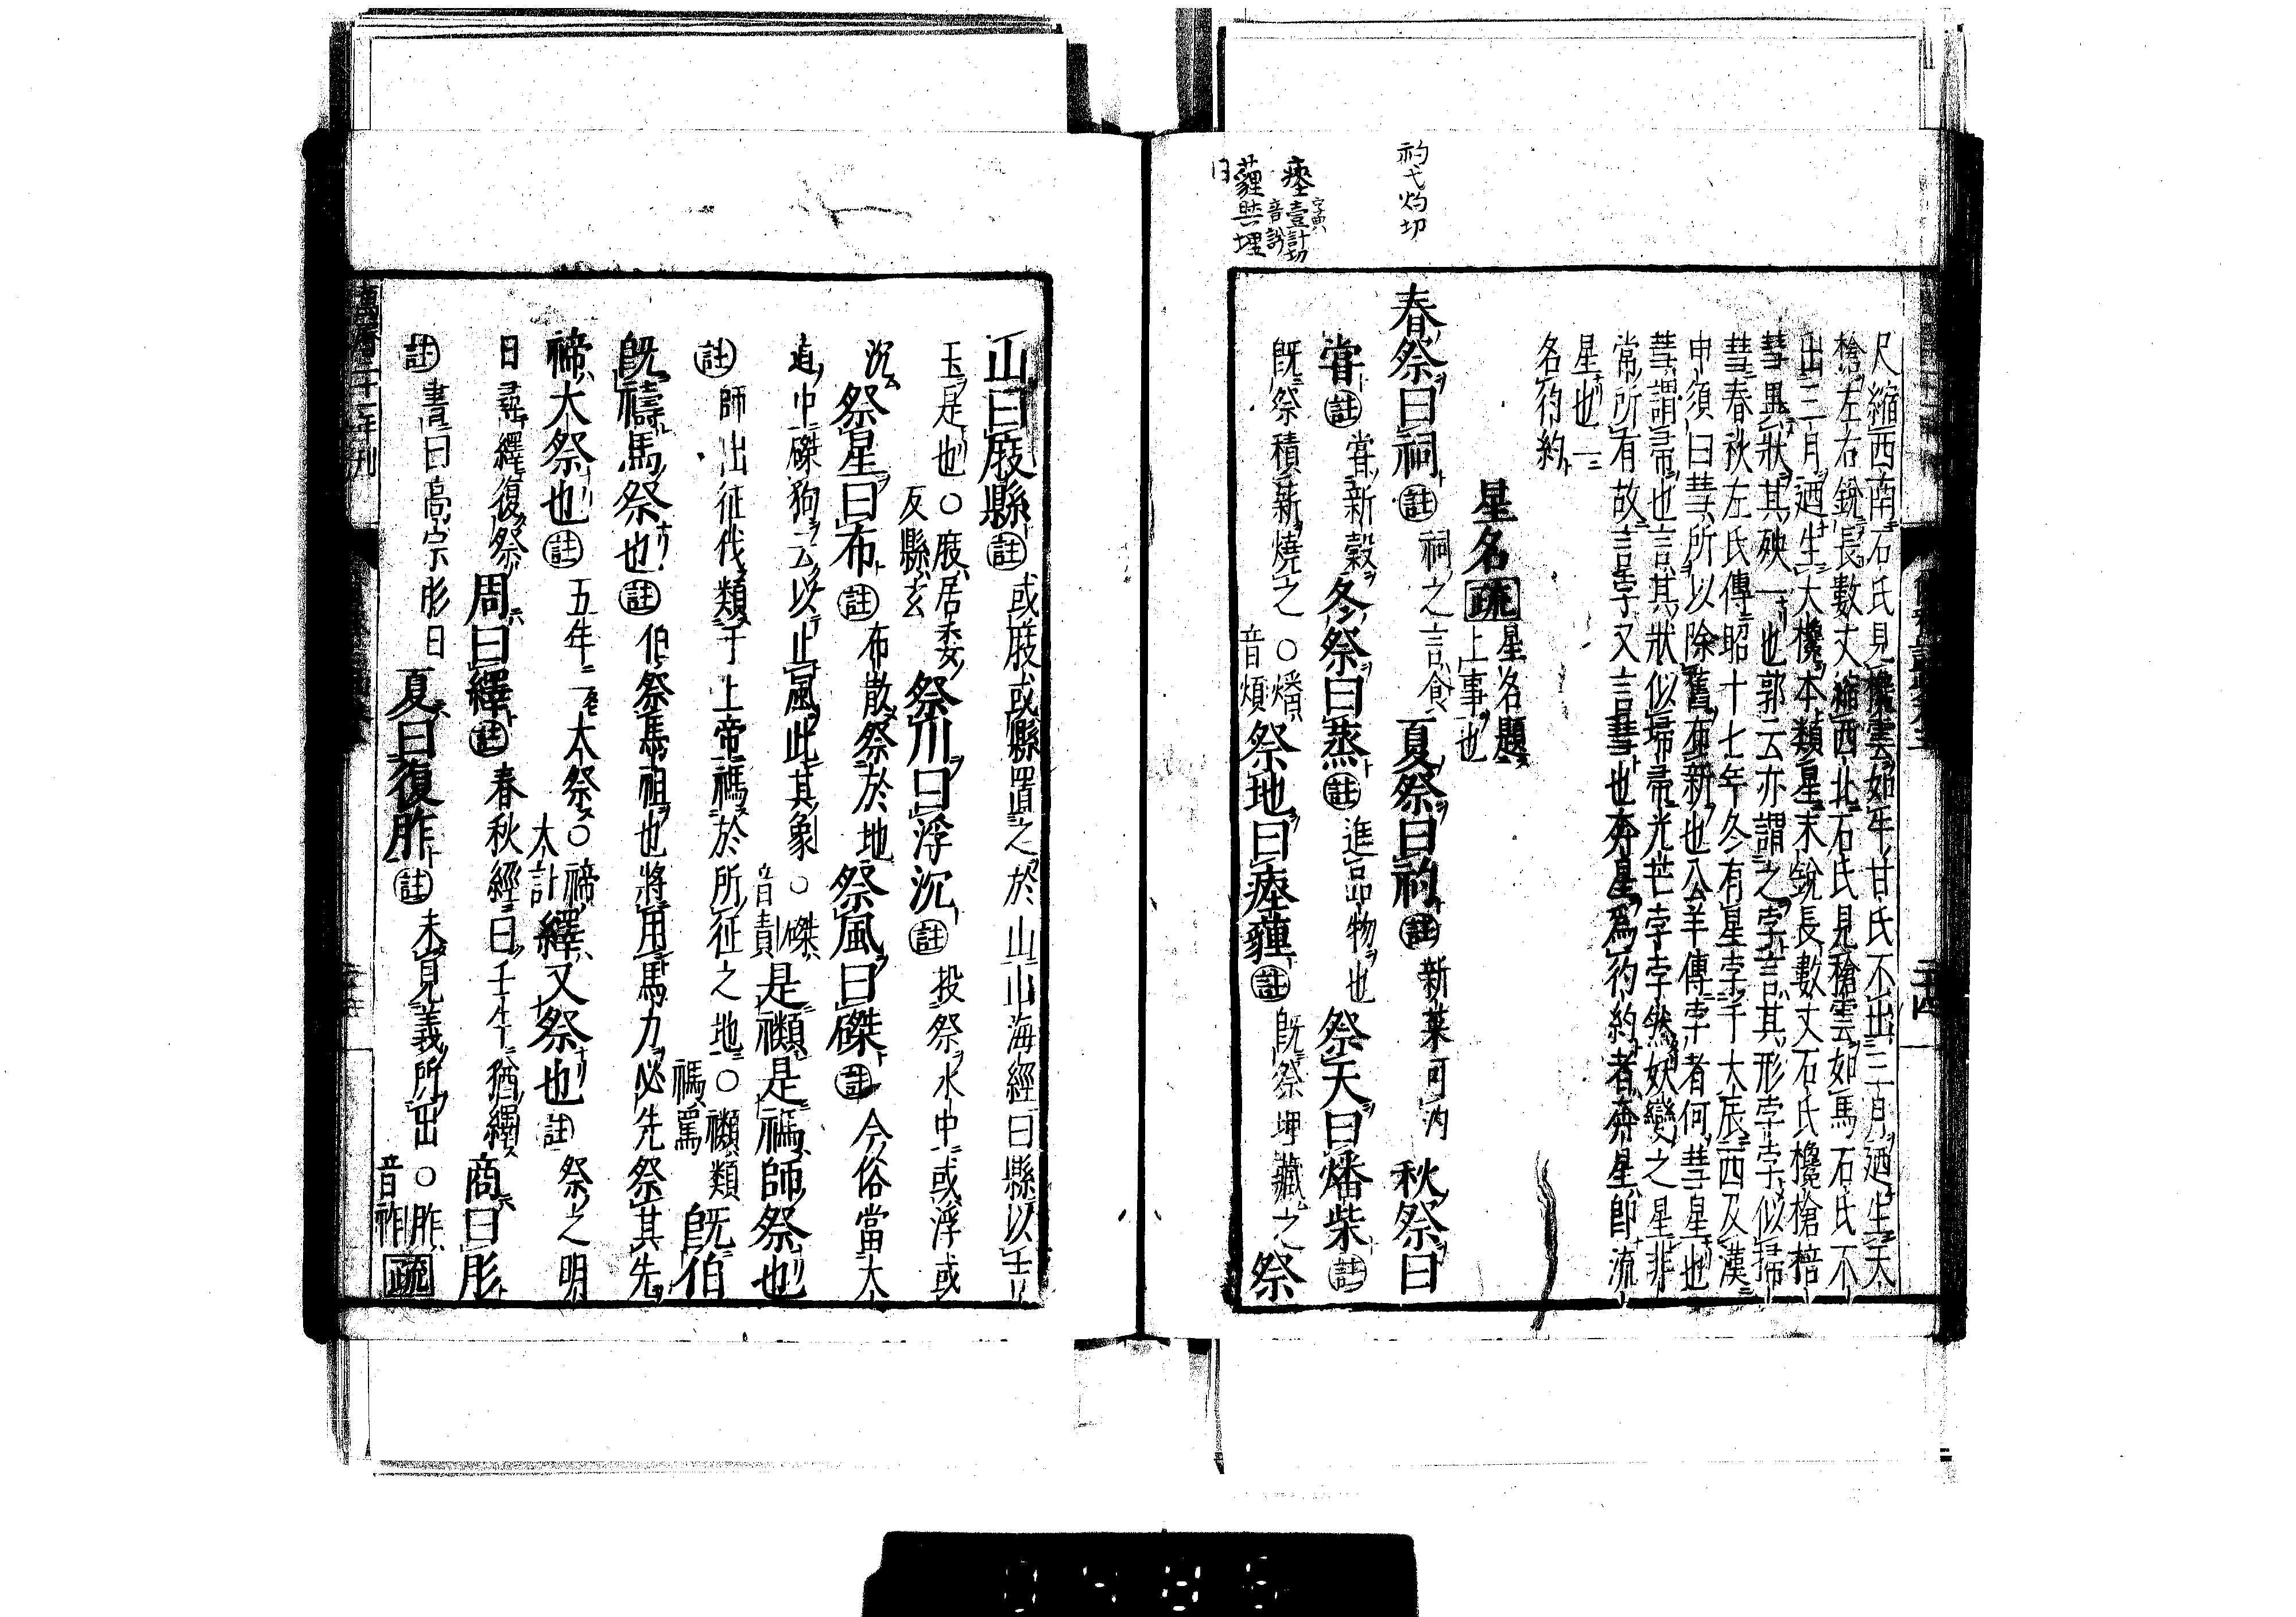 礿弋灼切
瘞壹計切
字典
音翳
薶與埋
同
尺縮西南石氏見欃雲如牛甘氏不出三月廼生天
槍左右銳長數丈縮西北石氏見槍雲如馬石氏不
出三月廼生大欃本類星末銳長數丈石氏欃槍棓
彗異狀其殃一也郭云亦謂之孛言其形孛孛似掃
彗春秋左氏傳昭十七年冬有星孛于大辰西及漢
申須曰彗所以除舊布新也公羊傳孛者何彗星也
彗謂帚也言其狀似埽帚光芒孛孛然妖變之星非
常所有故言孛又言彗也奔星爲彴約者奔星即流
星也一
名彴約
星名疏星名題
上事也
春祭曰祠註祠之言食夏祭曰礿註新菜可汋秋祭曰
嘗註嘗新穀冬祭曰蒸註進品物也祭天曰燔柴註
旣祭積薪燒之○燔
音煩祭地曰瘞薶註旣祭埋藏之祭
山曰庪縣註或庪或縣置之於山山海經曰縣以吉
玉是也○庪居委
反縣玄祭川曰浮沉註投祭水中或浮或
沉祭星曰布註布散祭於地祭風曰磔註今俗當大
道中磔狗云以止風此其象○磔
音責是禷是禡師祭也
註師出征伐類于上帝禡於所征之地○禷類
禡罵旣伯
旣禱馬祭也註伯祭馬祖也將用馬力必先祭其先
禘大祭也註五年一大祭○禘
大計繹又祭也註祭之明
日尋繹復祭周曰繹註春秋經曰壬午猶繹商曰肜
註書曰高宗肜日夏曰復胙註未見義所出○胙
音祚疏